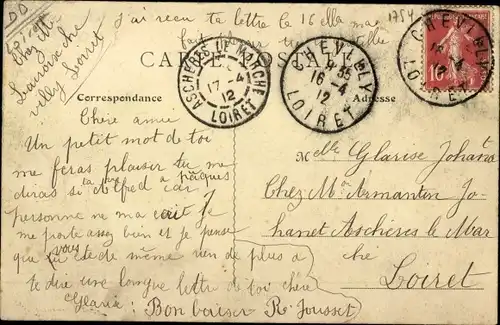 J'ai recu ta lettre le 16 ella ma
fait
1754
Epicier
Chez Mr
villy Loiret
CARTE POSTALE
Correspondance
Adresse
ASCHÈRES LE MARCHE
17-4
12
LOIRET
CHEVILLY
16-4
12
LOIRET
CHEVILLY
LOIRET
10
Chère amie
Un petit mot de toi
me feras plaisir tu me
diras si ta vu Alfred a pâques car
personne ne ma écrit je
me porte assez bien et je pense
que vous ete de même rien de plus a
te dire une longue lettre de toi chère
Glaria : Bon baiser R. Jousset
Melle Glarise Johanet
Chez Mr Armantin Jo-
hanet Aschères le Mar
che
Loiret